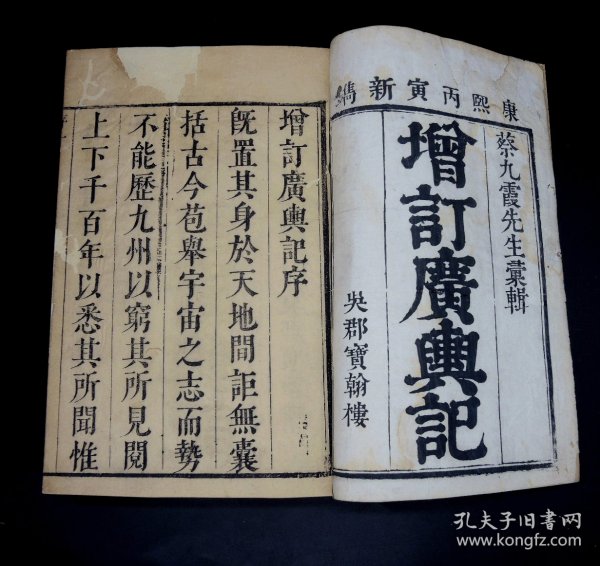 康熙丙寅新鐫
蔡九霞先生彙輯
增訂廣輿記
吳郡寶翰樓
增訂廣輿記序
既置其身於天地間詎無囊
括古今苞舉宇宙之志而勢
不能歷九州以窮其所見閱
上下千百年以悉其所聞惟
孔夫子旧书网
www.kongfz.com